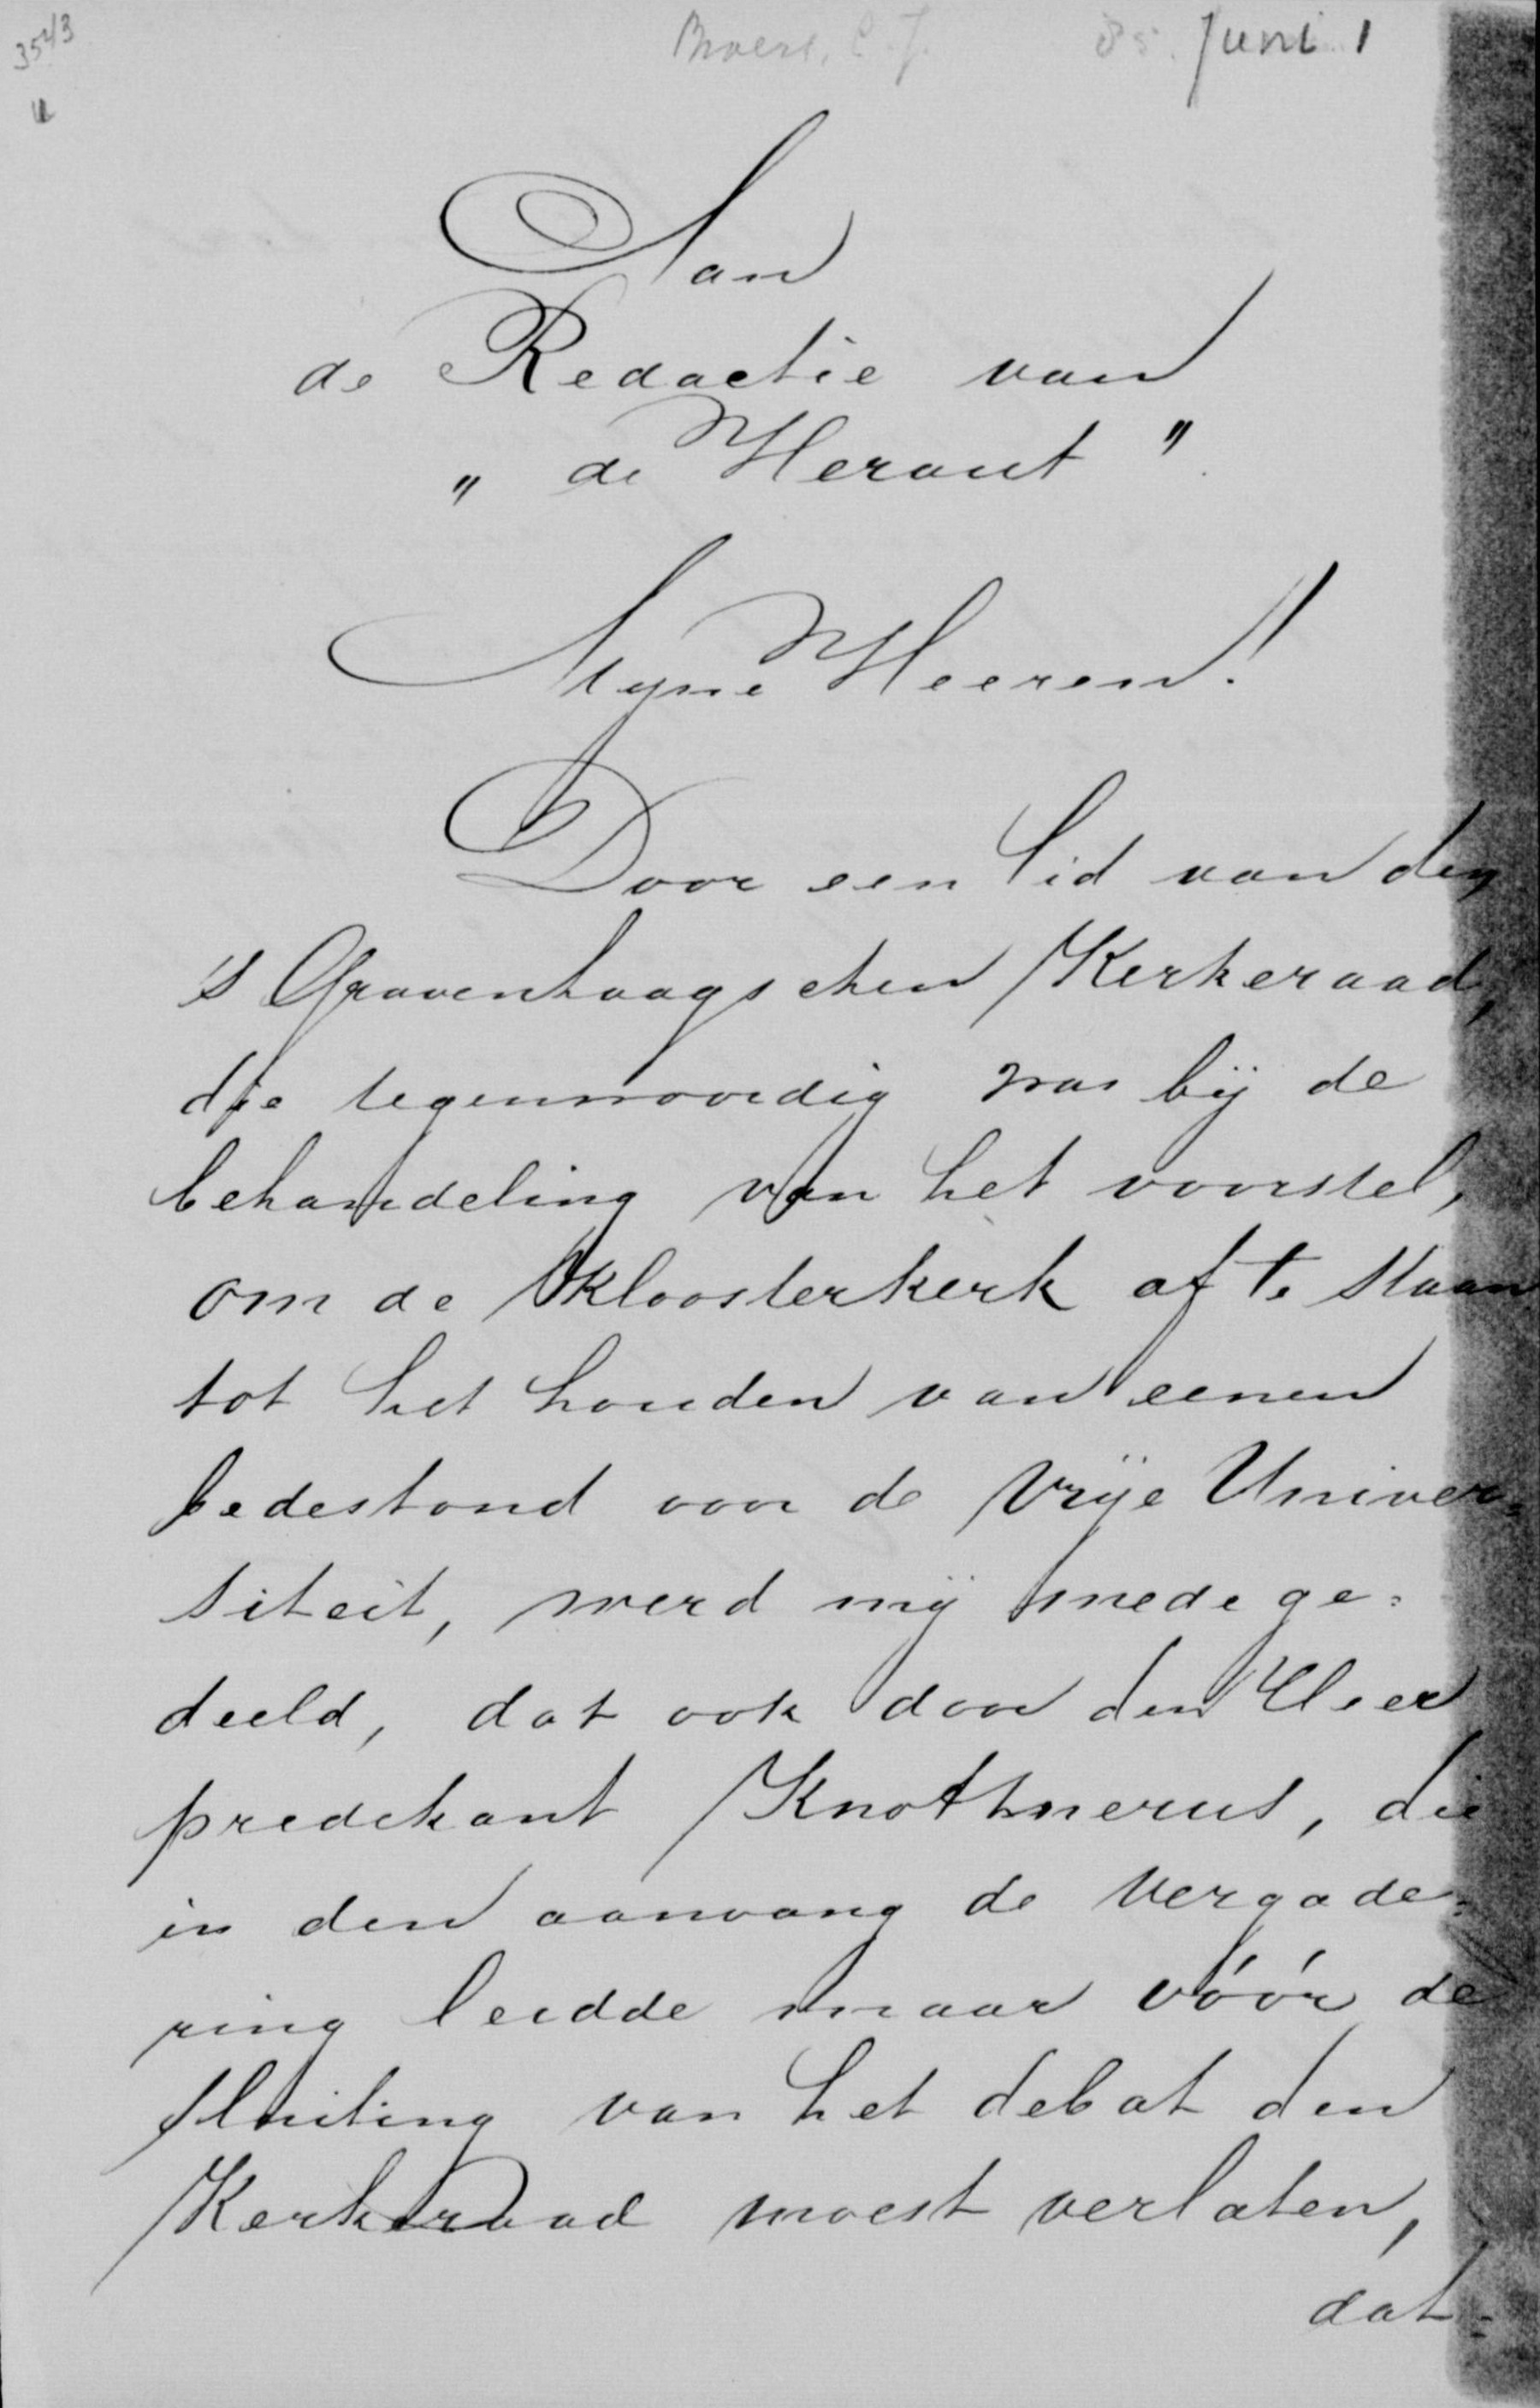 3543
Juni 1
Aan
de Redactie van
" de Heraut ".
Myne Heeren!
Door een lid van den
's Gravenhaagschen Kerkeraad,
die tegenwoordig was bij de
behandeling van het voorstel,
om de Kloosterkerk af te staan
tot het houden van eenen
bedestond voor de Vrije Univer=
siteit, werd mij medege=
deeld, dat ook door den Heer
predikant Knottnerus, die
in den aanvang de Vergade=
ring leidde maar vóór de
sluiting van het debat den
Kerkeraad moest verlaten,
dat=